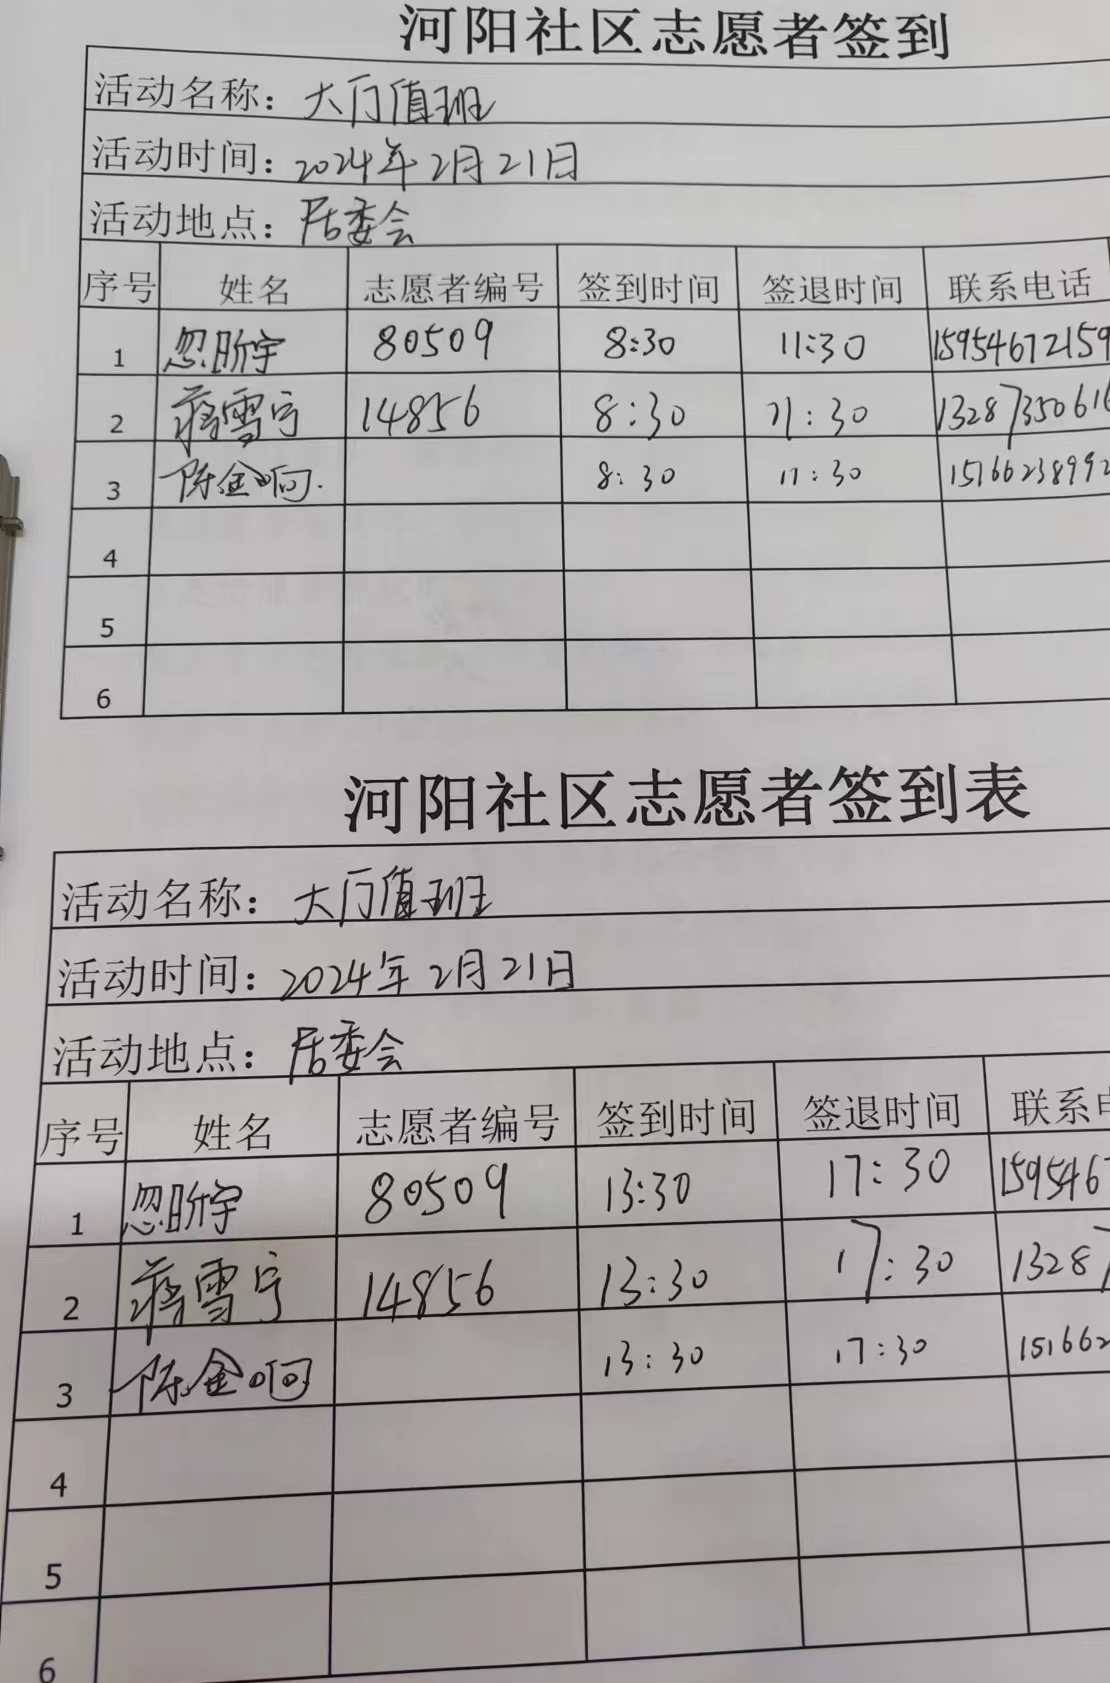 河阳社区志愿者签到
活动名称：大门值班
活动时间：2024年2月21日
活动地点：居委会
序号 姓名 志愿者编号 签到时间 签退时间 联系电话
1 忽昕宇 80509 8:30 11:30 15954672159
2 蒋雪宁 14856 8:30 11:30 1328735061
3 陈金响 8:30 11:30 1516623899
4
5
6
河阳社区志愿者签到表
活动名称：大门值班
活动时间：2024年2月21日
活动地点：居委会
序号 姓名 志愿者编号 签到时间 签退时间 联系
1 忽昕宇 80509 13:30 17:30 1595467
2 蒋雪宁 14856 13:30 17:30 13287
3 陈金响 13:30 17:30 151662
4
5
6